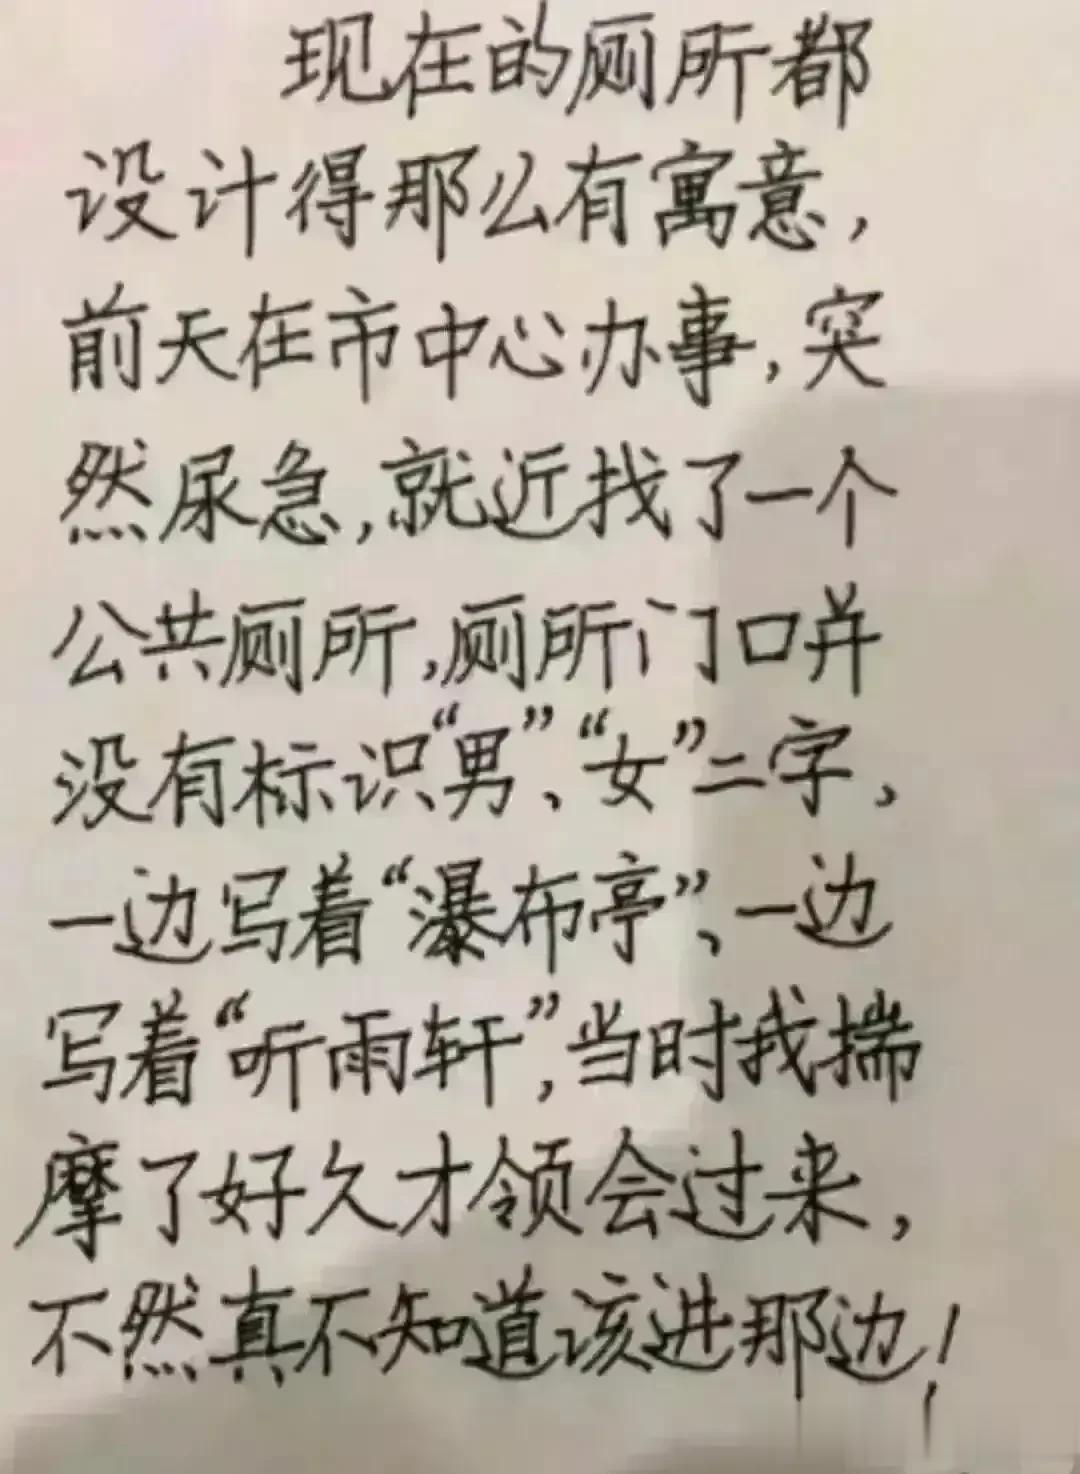 现在的厕所都
设计得那么有寓意，
前天在市中心办事，突
然尿急，就近找了一个
公共厕所，厕所门口并
没有标识“男”、“女”二字，
一边写着“瀑布亭”、一边
写着“听雨轩”，当时我揣
摩了好久才领会过来，
不然真不知道该进那边！